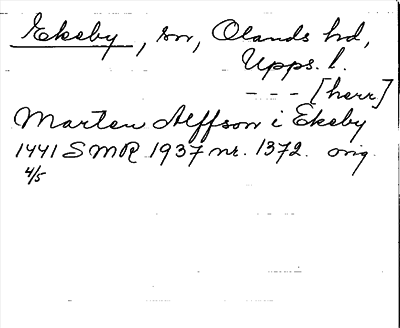 Ekeby, sn, Olands hd,
Upps. l.
- - - [herr]
Marten Alffson i Ekeby
1441 SMR 1937 nr. 1372. orig.
4/5